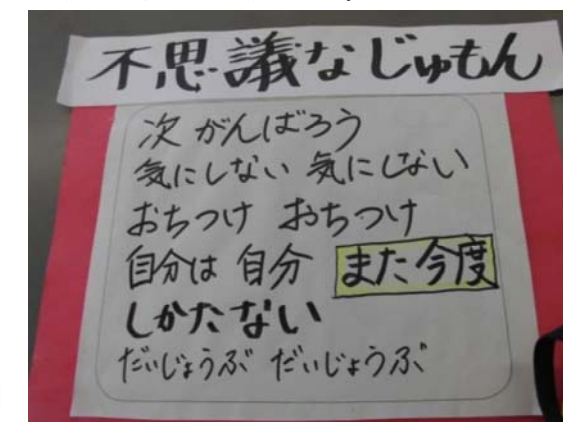 不思議なじゅもん
次 がんばろう
気にしない 気にしない
おちつけ おちつけ
自分は 自分 また今度
しかたない
だいじょうぶ だいじょうぶ